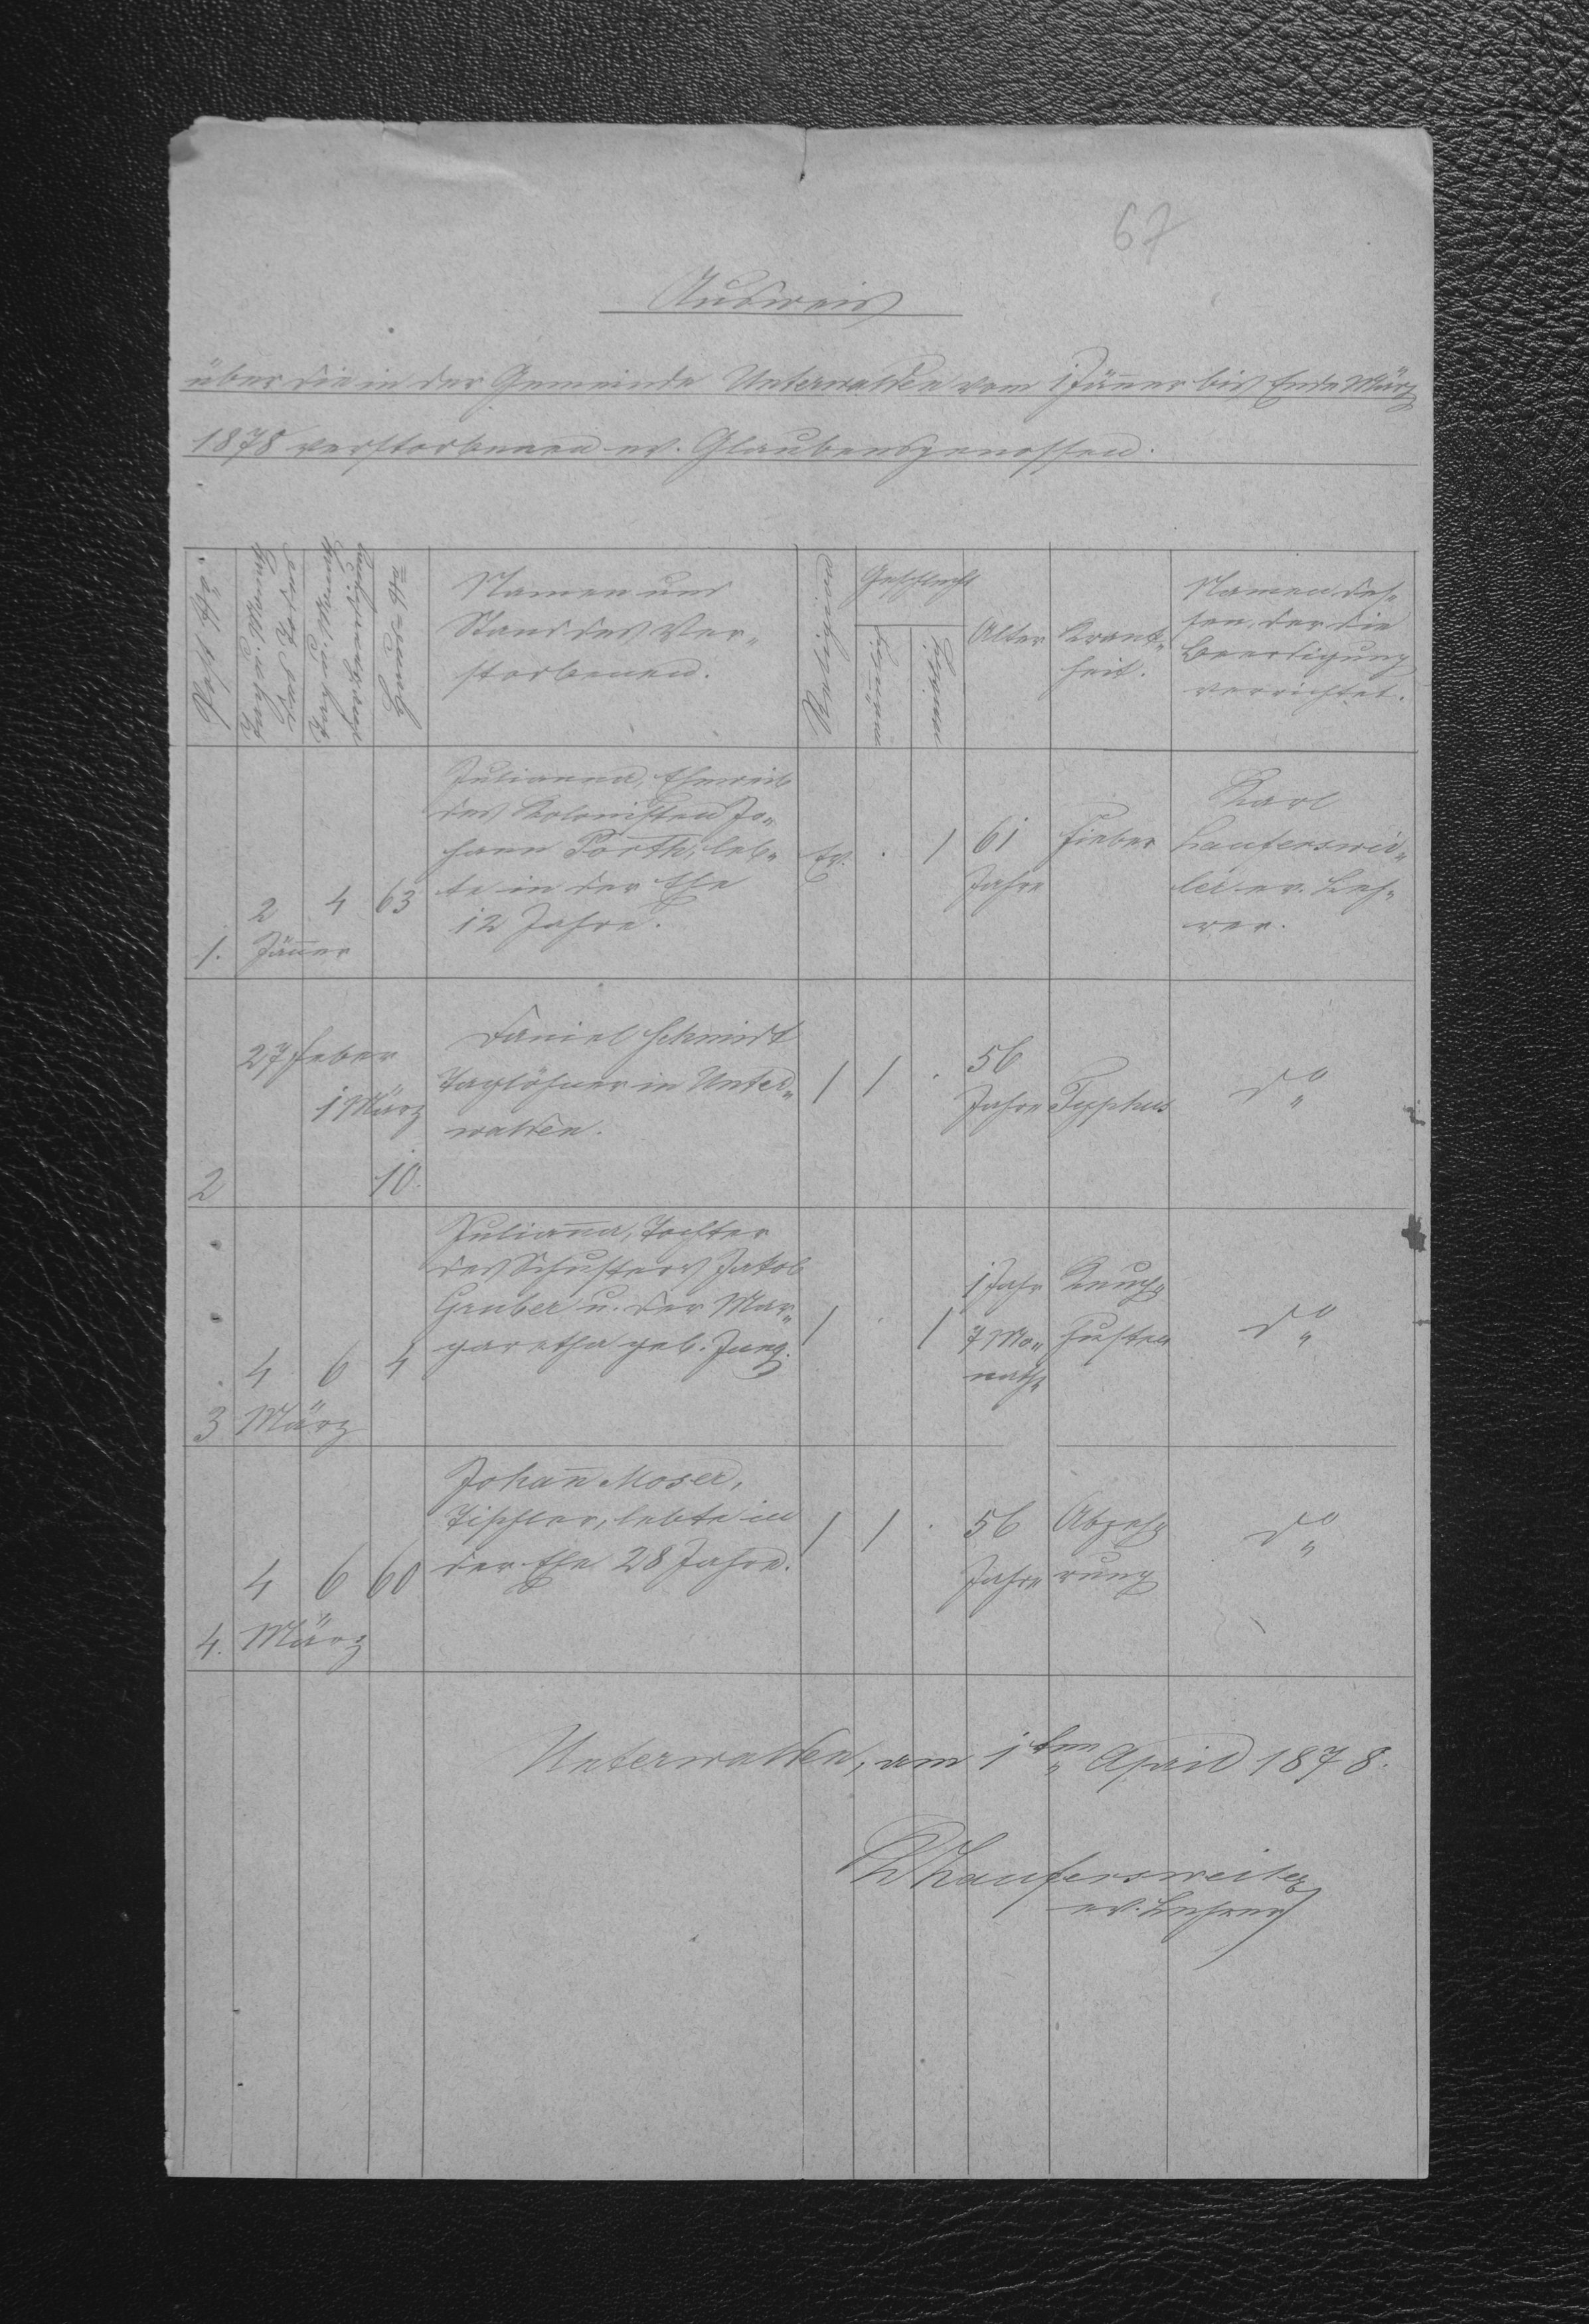 67
Ausweis
über die in der Gemeinde Unterwalden vom 1 Jäner bis Ende März
1878 verstorbenen ev. Glaubensgenossen.
Tag u. Monat
des Todes
Tag u. Monat
der Beerdigung
Haus No
Namen und
Stand des Ver„
storbenen.
Religion
Geschlecht
männlich
weiblich
Alter
Krank„
heit.
Namen des„
sen, der die
Beerdigung
verrichtet.
1.
2
Jäner
4
63
Julianna, Eheweib
des Kolonisten Jo„
hann Porth, leb„
te in der Ehe
12 Jahre.
Ev.
1
61
Jahre
Fieber
Karl
Laufersweil„
ler ev. Leh„
rer.
2
27 Feber
1 März
10.
Daniel Schmidt
Taglöhner in Unter„
walden.
1
1
56
Jahre
Typhus
do
3
4
März
6
4
Juliana, Tochter
des Schusters Jakob
Gruber u. der Mar„
garetha geb. Jung.
1
1
1 Jahr
7 Mo„
nathe
Keuch„
husten
do
4.
4
März
6
60
Johan Moser,
Tischler, lebte in
der Ehe 28 Jahre.
1
1
56
Jahre
Abzeh„
rung
do
Unterwalden, am 1ten April 1878.
Laufersweiler
ev. Lehrer